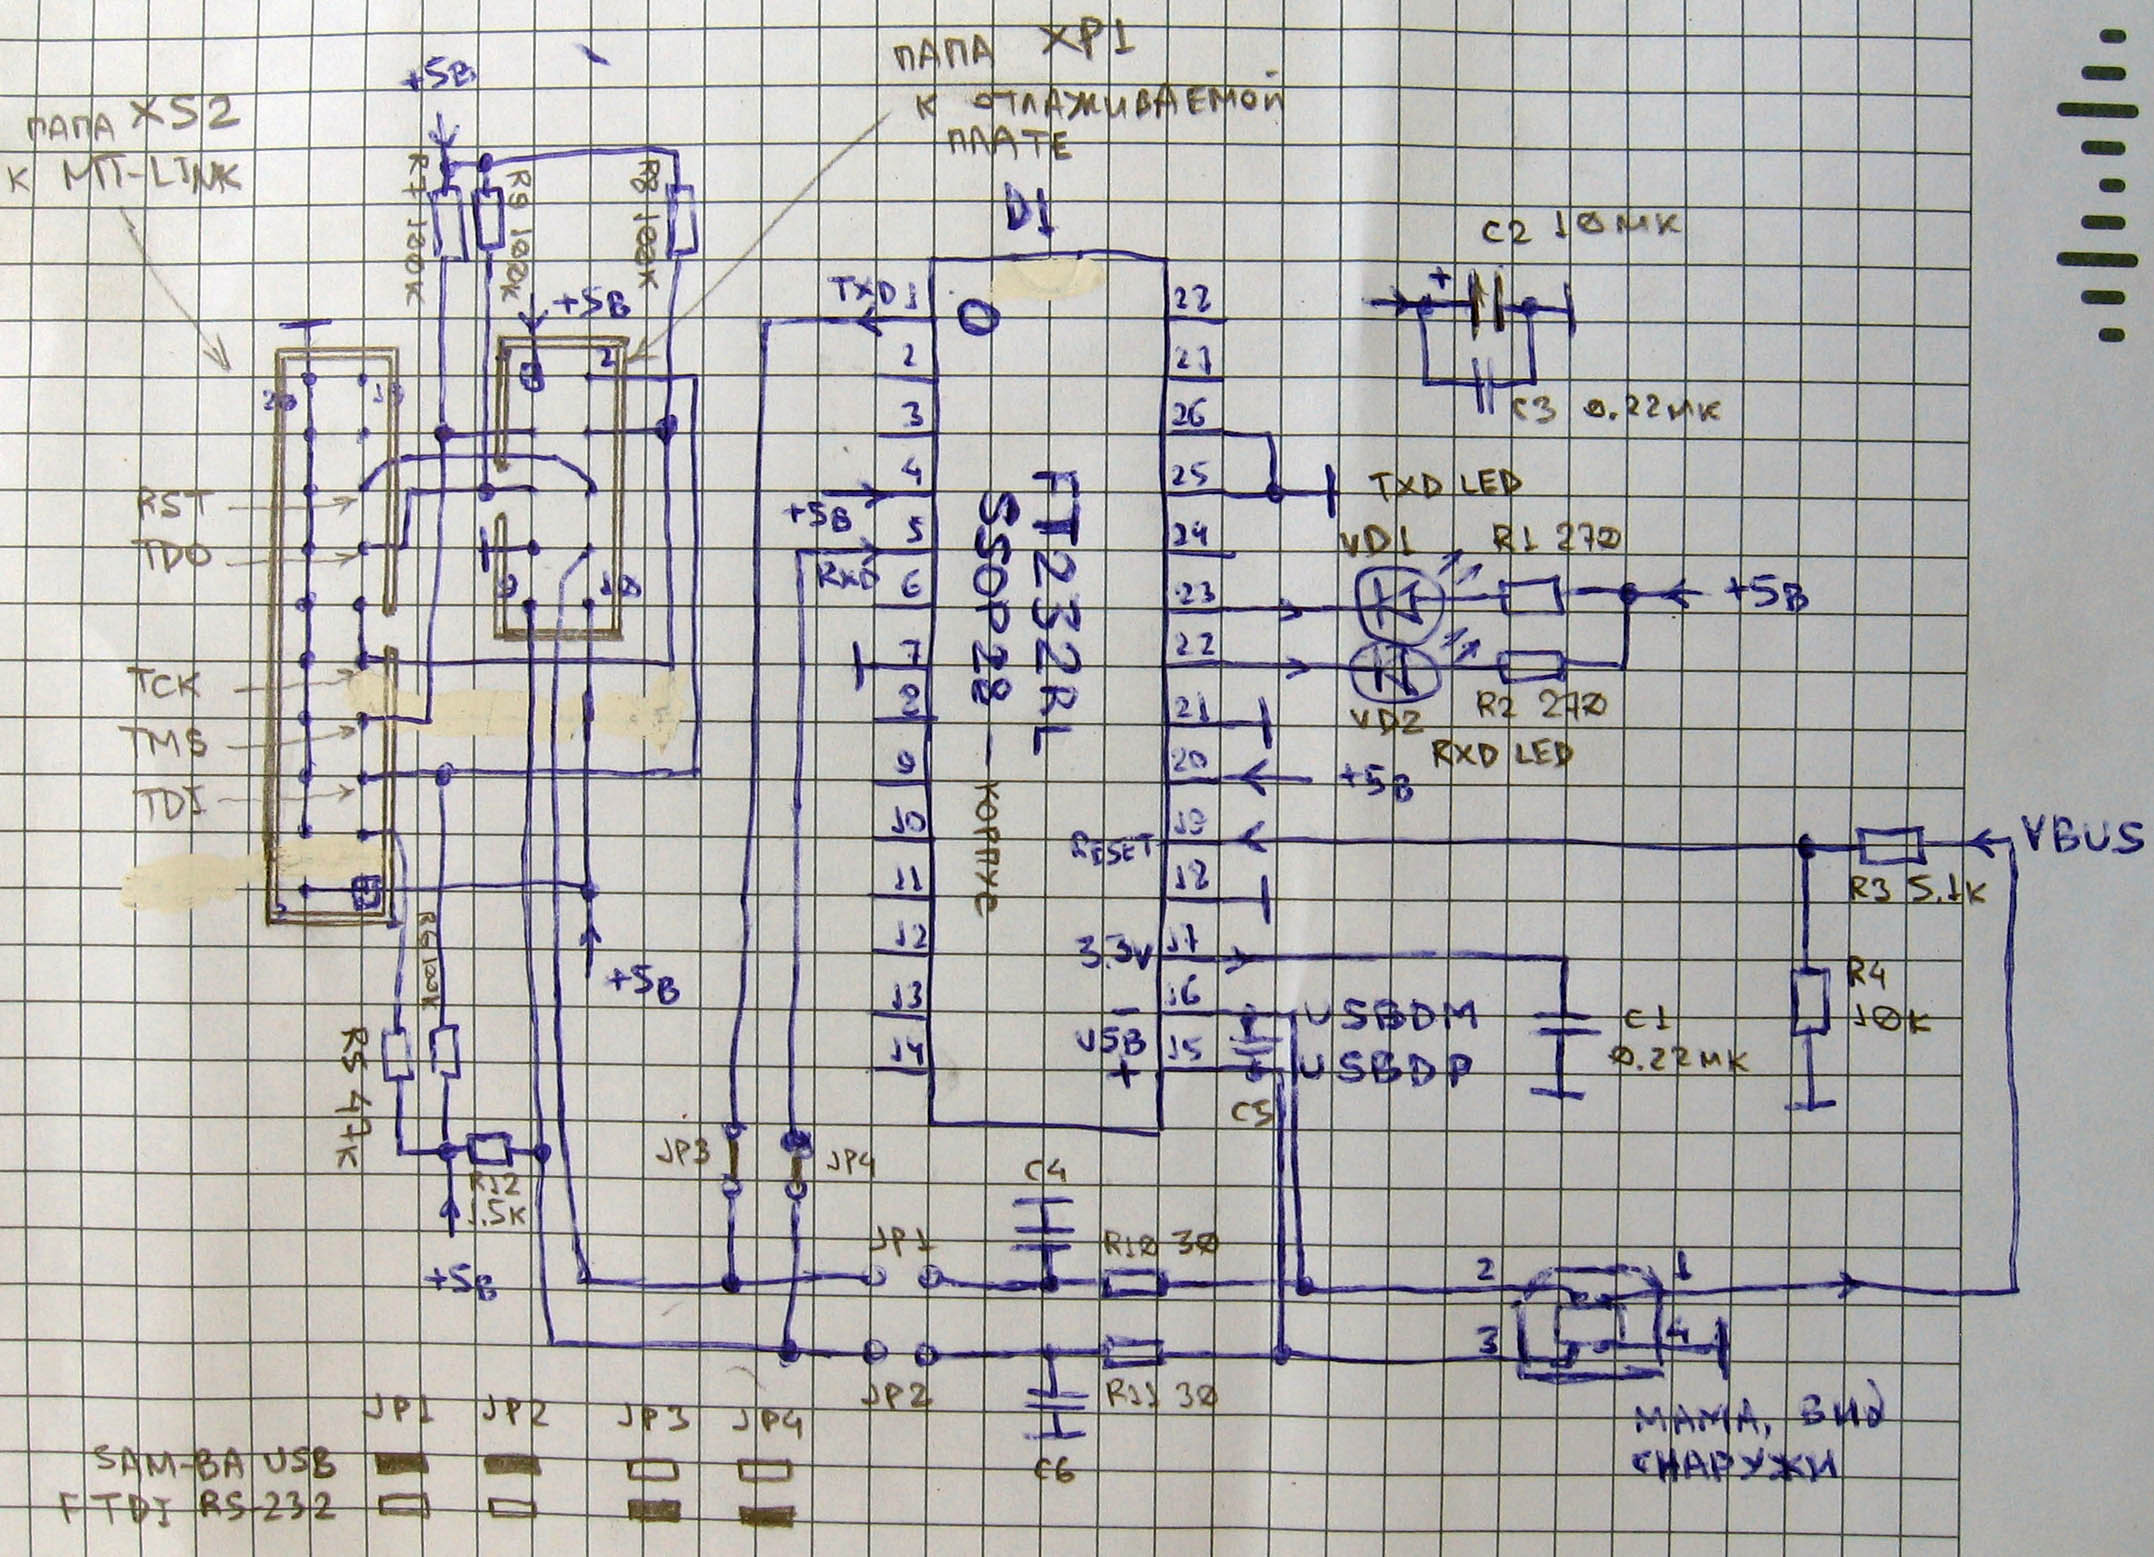 ПАПА XS2
К МТ-LINK
+5В
ПАПА XP1
К ОТЛАЖИВАЕМОЙ
ПЛАТЕ
R7 100K
R9 100K
R8 100K
+5В
2
9
10
20
19
2
RST
TDO
TCK
TMS
TDI
+5В
R6 100K
R5 47K
R12
1.5K
+5В
D1
FT232RL
SSOP28 — КОРПУС
TXD 1
2
3
4
+5В
5
RXD
6
7
8
9
10
11
12
13
14
28
27
26
25
24
23
22
21
20
+5В
RESET 19
18
3.3V 17
16
USB
15
- USBDM
+ USBDP
C5
C2 10МК
+
C3 0.22МК
TXD LED
VD1
R1 270
+5В
VD2
R2 270
RXD LED
VBUS
R3 5.1K
R4
10K
C1
0.22МК
JP3
JP4
JP1
JP2
C4
R10 30
R11 30
C6
2
1
3
4
МАМА, ВИД
СНАРУЖИ
JP1 JP2 JP3 JP4
SAM-BA USB
FTDI RS-232